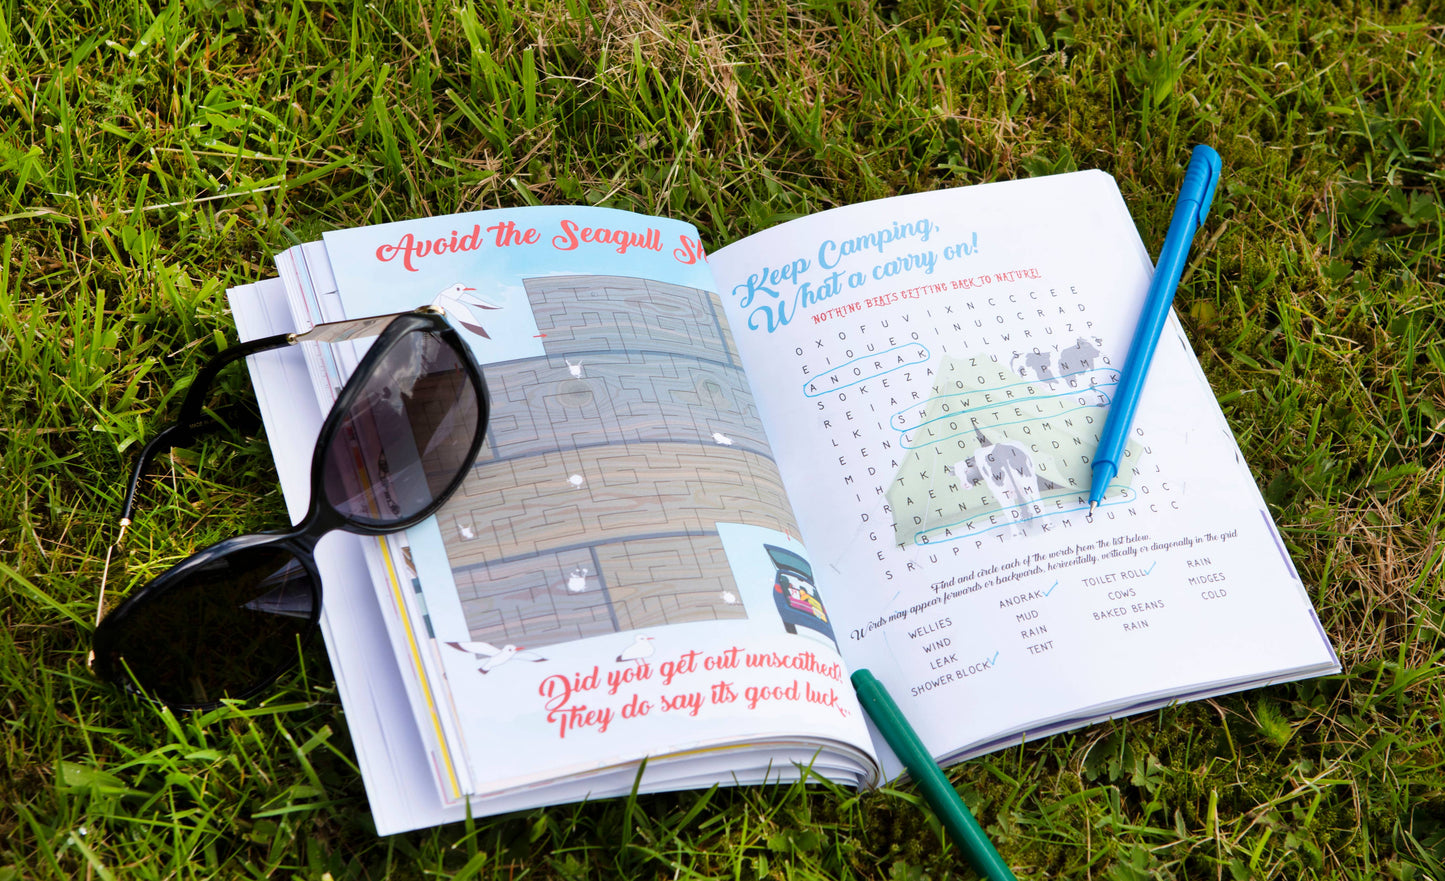 Avoid the Seagull
Did you get out unscathed?
They do say its good luck...
Keep Camping,
What a carry on!
NOTHING BEATS GETTING BACK TO NATURE!
O X O F U V I X N C C C E E
E I O U E O I N U O C R A D
A N O R A K I I L W R U Z P
S O K E Z A J Z U S Q Y S
R E I A R Y O O E E P N M Q
L K I S H O W E R B L O C K
E E N L L O R T E L I O T
M D A I L O W Q M N D
I H T K A E G I
D R A E M R W V U I D
G T D T N E T M W R N J
E T B A K E D B E A S O C
S R U P P T I K M D U N C C
Find and circle each of the words from the list below.
Words may appear forwards or backwards, horizontally, vertically or diagonally in the grid
WELLIES ANORAK TOILET ROLL RAIN
WIND MUD COWS MIDGES
LEAK RAIN BAKED BEANS COLD
SHOWER BLOCK TENT RAIN